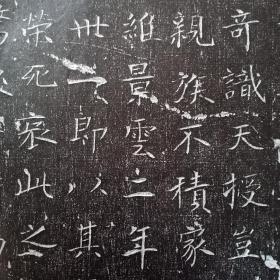 奇識天授豈
親族不積家
維景雲二年
世一即以其
榮死哀此之